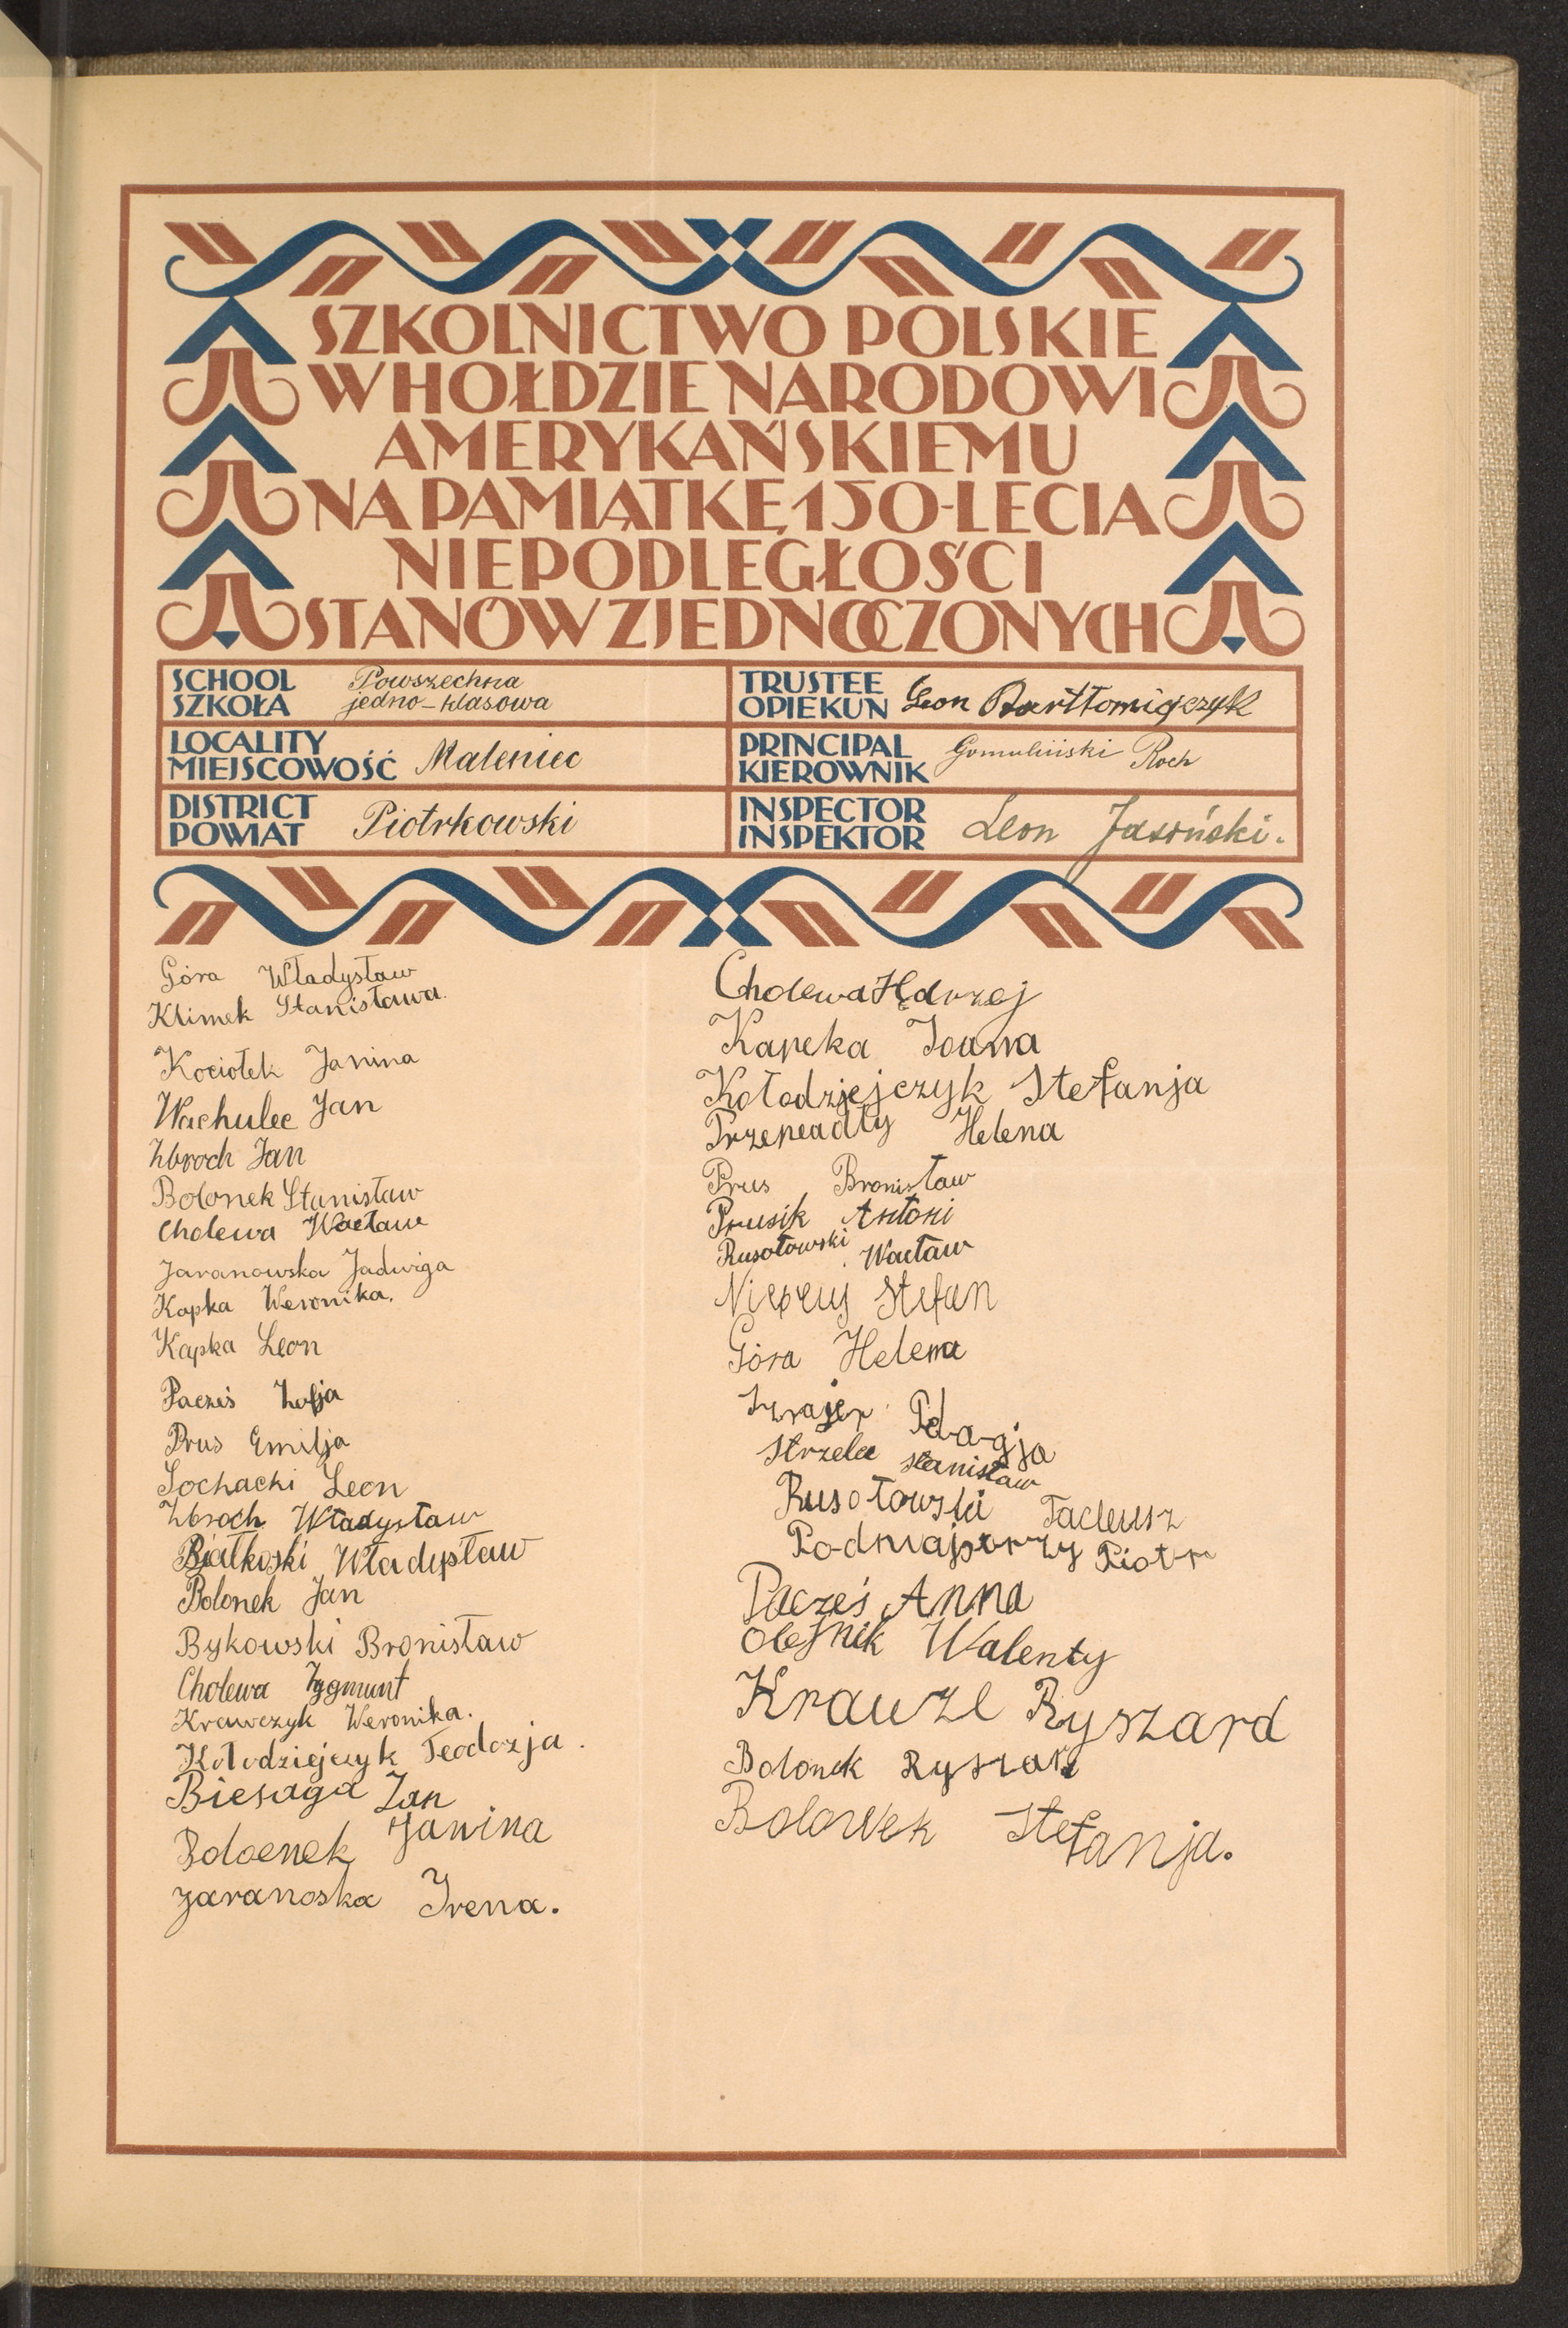 SZKOLNICTWO POLSKIE
W HOŁDZIE NARODOWI
AMERYKAŃSKIEMU
NA PAMIĄTKĘ 150-LECIA
NIEPODLEGŁOŚCI
STANÓW ZJEDNOCZONYCH
SCHOOL
SZKOŁA
Powszechna
jedno-klasowa
TRUSTEE
OPIEKUN
Leon Bartłomiejczyk
LOCALITY
MIEJSCOWOŚĆ
Maleniec
PRINCIPAL
KIEROWNIK
Gomuliński Roch
DISTRICT
POWIAT
Piotrkowski
INSPECTOR
INSPEKTOR
Leon Jasiński.
Góra Władysław
Klimek Stanisława.
Kociołek Janina
Wachulec Jan
Zbroch Jan
Bolonek Stanisław
Cholewa Wacław
Jaranowska Jadwiga
Kapka Weronika.
Kapka Leon
Pacześ Zofja
Prus Emilja
Sochacki Leon
Zbroch Władysław
Białkoski Władysław
Bolonek Jan
Bykowski Bronisław
Cholewa Zygmunt
Krawczyk Weronika.
Kołodziejczyk Teodozja.
Biesaga Jan
Janina
Jaranoska Irena.
Cholewa
Kołodziejczyk Stefanja
Helena
Prus Bronisław
Prusik Antoni
Rusołowski Wacław
Stefan
Góra Helena
Strzelec Stanisław
Rusołowski Tadeusz
Piotr
Pacześ Anna
Olejnik Walenty
Krauze Ryszard
Bolonek
Stefanja.